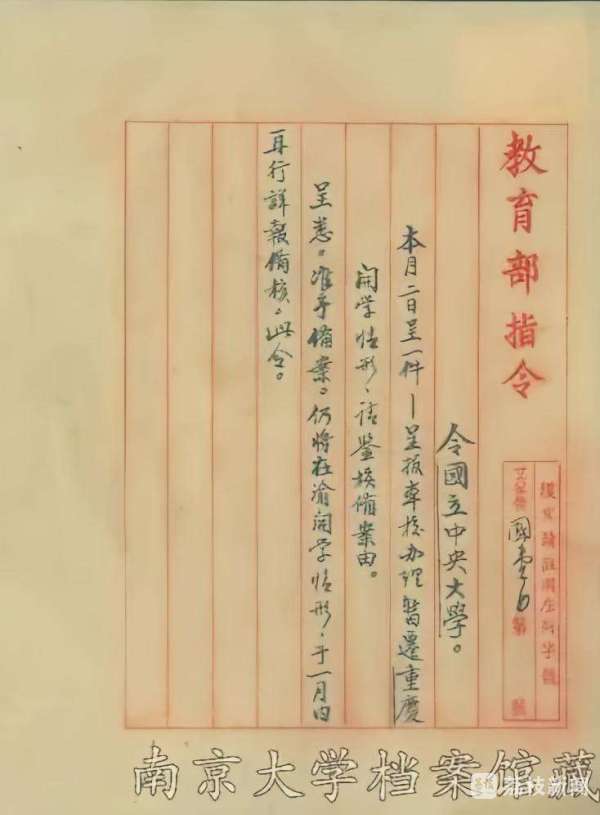 教育部指令
復文請註明左列字號
國壹1 第 號
令國立中央大學。
本月二日呈一件—呈报本校办理暂遷重慶
開学情形，请鉴核備案由。
呈悉。准予備案。仍将在渝開学情形，于一月内
再行詳報備核。此令。
南京大学档案馆藏
荔枝新闻